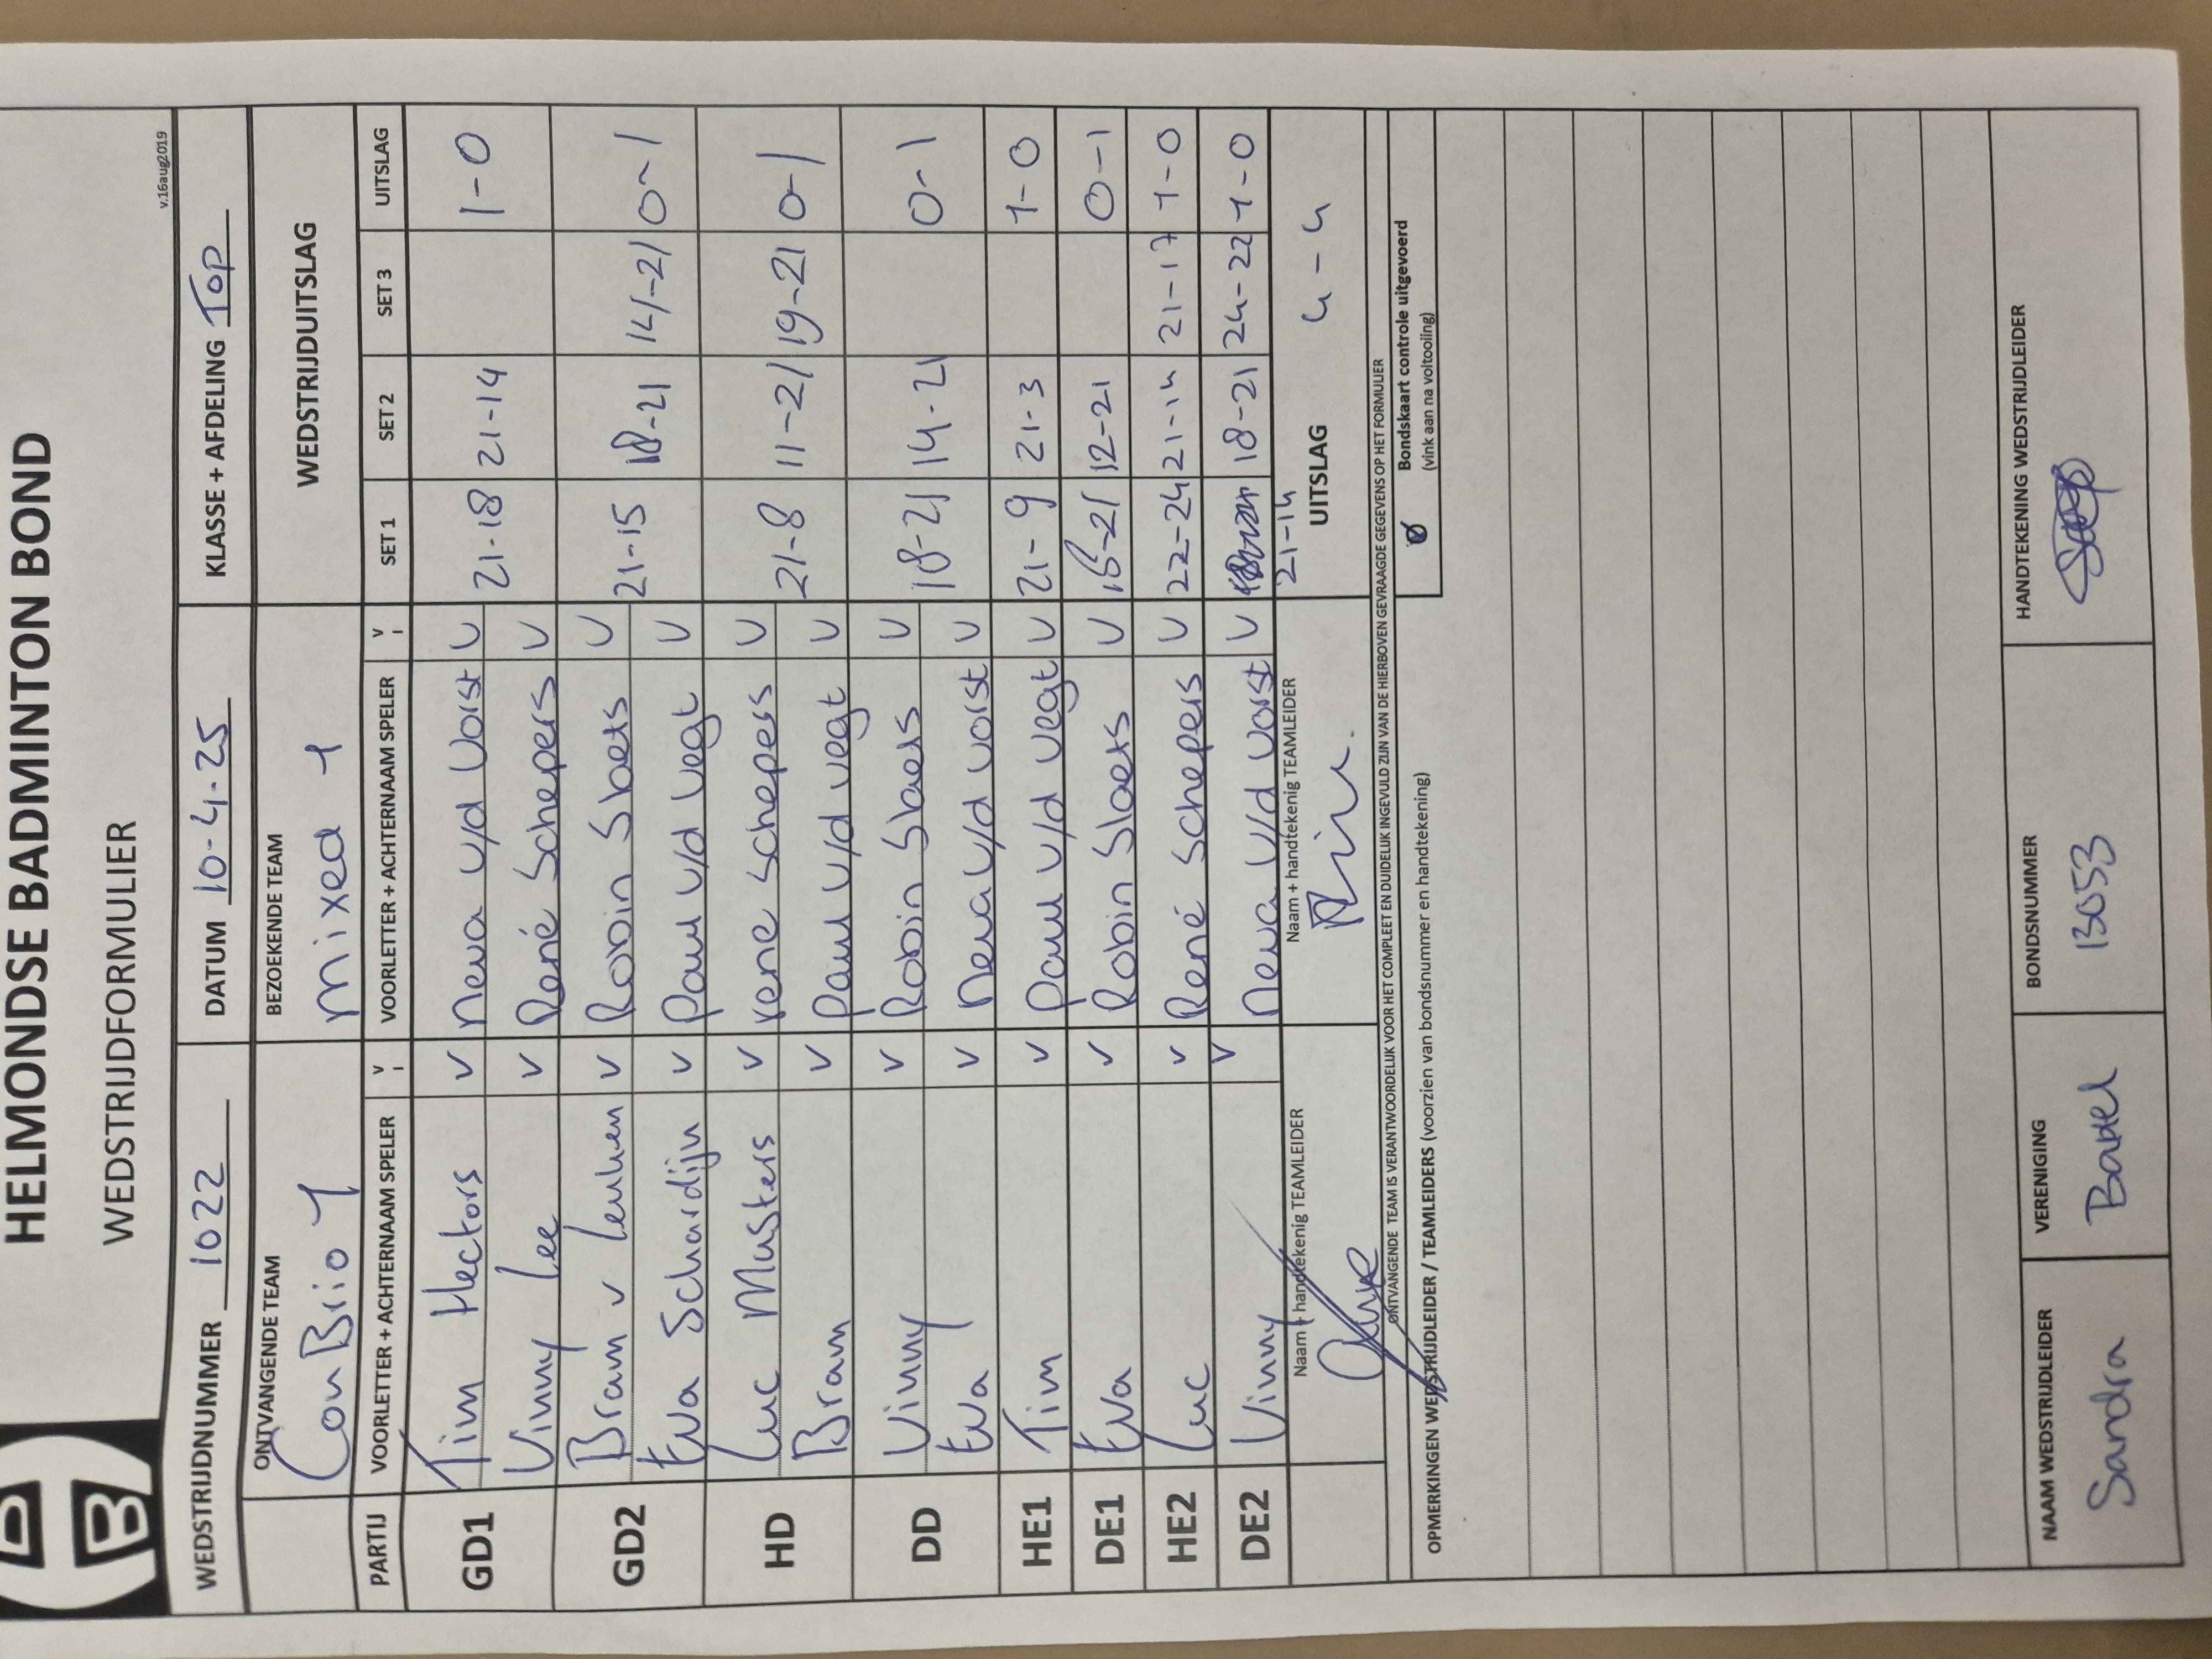 HELMONDSE BADMINTON BOND
WEDSTRIJDFORMULIER
v.16aug2019
WEDSTRIJDNUMMER 1022 DATUM 10-4-25 KLASSE + AFDELING Top
ONTVANGENDE TEAM BEZOEKENDE TEAM WEDSTRIJDUITSLAG
Con Brio 1 mixed 1
PARTIJ VOORLETTER + ACHTERNAAM SPELER V VOORLETTER + ACHTERNAAM SPELER V SET 1 SET 2 SET 3 UITSLAG
GD1 Tim Hectors V v/d Vorst V 21-18 21-14 1-0
Vinny Lee V René Schepers V
GD2 Bram v Leuken V Robin Slaets V 21-15 18-21 14-21 0-1
Eva Schardijn V Paul v/d Vegt V
HD Luc Musters V rene Schepers V 21-8 11-21 19-21 0-1
Bram V Paul v/d vegt V
DD Vinny V Robin Slaets V 18-21 14-21 0-1
Eva V v/d Vorst V
HE1 Tim V Paul v/d Vegt V 21-9 21-3 1-0
DE1 Eva V Robin Slaets V 12-21 0-1
HE2 Luc V René Schepers V 22-24 21-14 21-17 1-0
DE2 Vinny V v/d Vorst V 18-21 24-22 1-0
21-14
Naam + handtekenig TEAMLEIDER Naam + handtekenig TEAMLEIDER UITSLAG 4-4
ONTVANGENDE TEAM IS VERANTWOORDELIJK VOOR HET COMPLEET EN DUIDELIJK INGEVULD ZIJN VAN DE HIERBOVEN GEVRAAGDE GEGEVENS OP HET FORMULIER
OPMERKINGEN WEDSTRIJDLEIDER / TEAMLEIDERS (voorzien van bondsnummer en handtekening)
Bondskaart controle uitgevoerd
(vink aan na voltooiing)
NAAM WEDSTRIJDLEIDER VERENIGING BONDSNUMMER HANDTEKENING WEDSTRIJDLEIDER
Sandra Bakel 13053